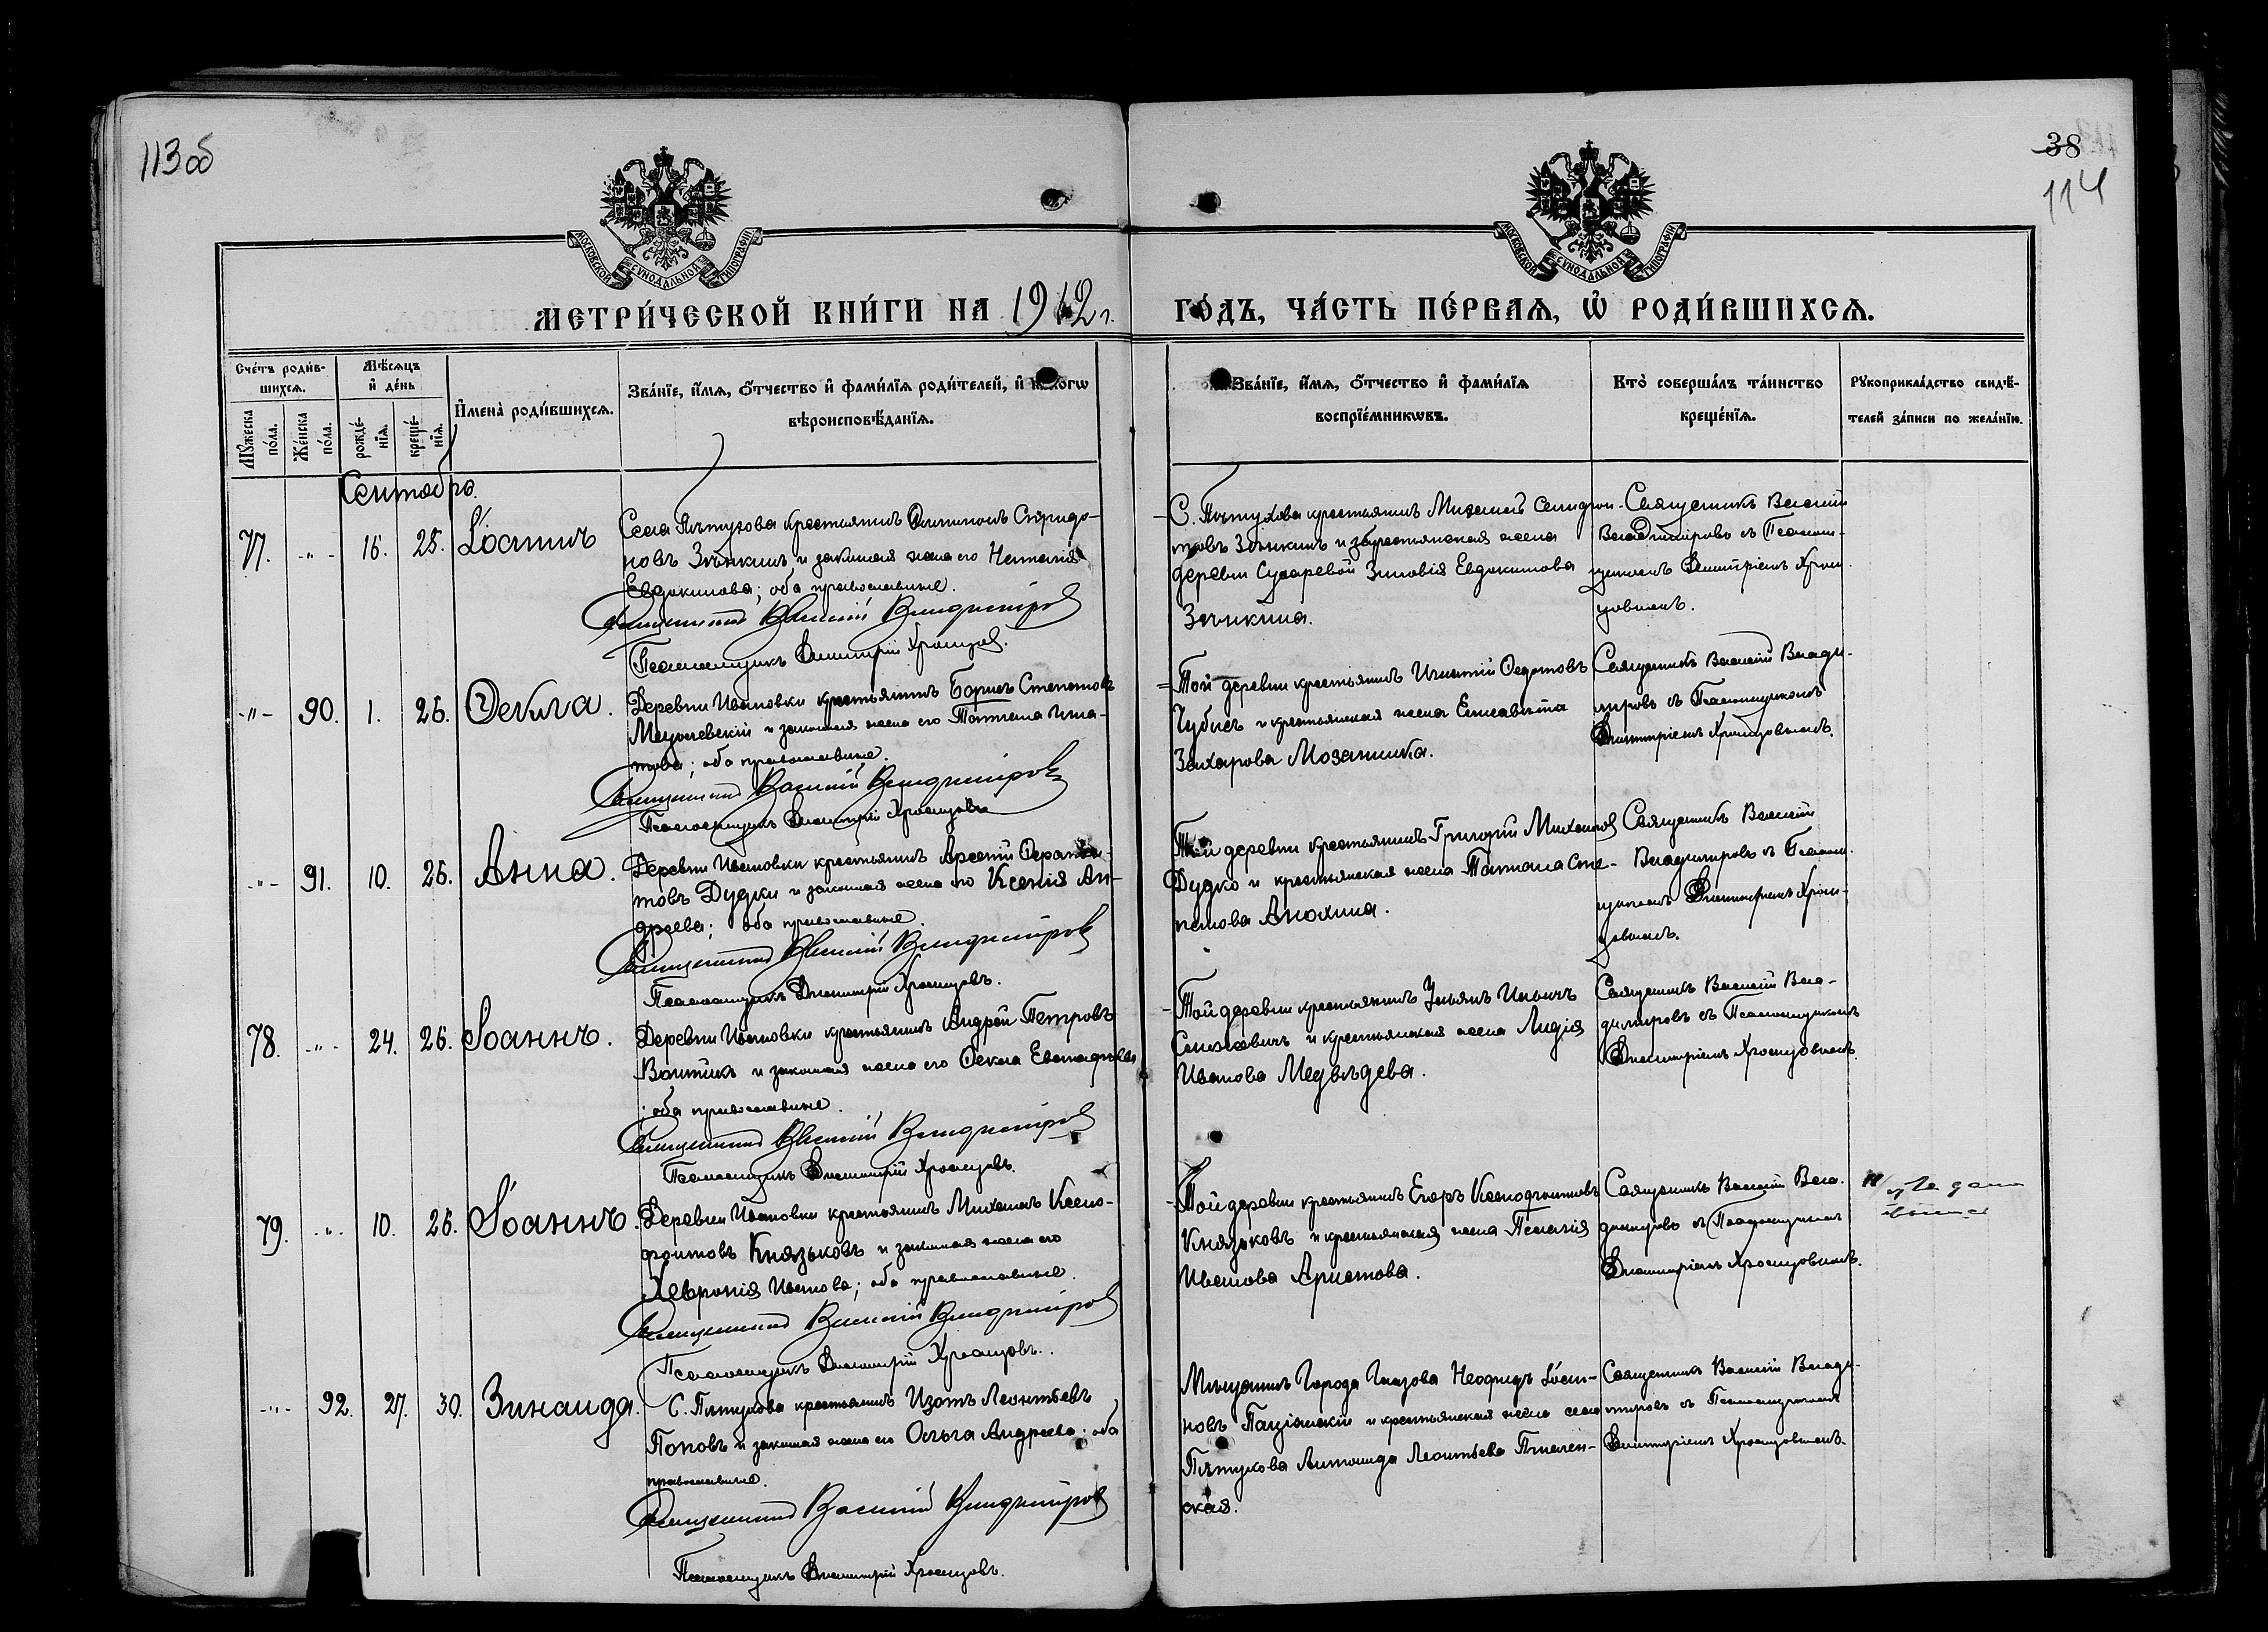 113 об
38
114
МОСКОВСКОЙ СУНОДАЛЬНОЙ ТИПОГРАФІИ
МОСКОВСКОЙ СУНОДАЛЬНОЙ ТИПОГРАФІИ
МЕТРИ́ЧЕСКОЙ КНИ́ГИ НА 1912 г.
ГО́ДЪ, ЧА́СТЬ ПЕ́РВАѦ, Ѡ҆ РОДИ́ВШИХСѦ.
Сче́тъ роди́в-
шихсѧ.
Мѣ́сѧцъ
и҆ де́нь
Мꙋ́жеска
по́ла.
Же́нска
по́ла.
рожде́-
нїѧ.
креще́-
нїѧ.
И҆мена̀ роди́вшихсѧ.
Зва́нїе, и҆́мѧ, ѻ҆́тчество и҆ фами́лїѧ роди́телей, и҆ како́гѡ
вѣроисповѣ́данїѧ.
Зва́нїе, и҆́мѧ, ѻ҆́тчество и҆ фами́лїѧ
воспрїе́мникѡвъ.
Кто̀ соверша́лъ та́инство
креще́нїѧ.
Рꙋкоприкла́дство свидѣ́-
телей за́писи по жела́нїю.
Сентябрь.
77. -"- 16. 25. Іоаннъ
Села Пѣтухова крестьянинъ Спиридо-
новъ Зѣнкинъ и законная жена его Наталія
Евдокимова; оба православные.
Священникъ Василій Владиміровъ
Псаломщикъ Димитрій Хромцовъ.
С. Пѣтухова крестьянинъ Михаилъ
Зѣнкинъ и крестьянская жена
деревни Сухаревой Зиновія Евдокимова
Зѣнкина.
Священникъ Василій
Владиміровъ съ Псалом-
щикомъ Димитріемъ Хром-
цовымъ.
-"- 90. 1. 26. Ѳекла.
Деревни Ивановки крестьянинъ Борисъ Степановъ
и законная жена его Татіана Игна-
това; оба православные.
Священникъ Василій Владиміровъ
Псаломщикъ Димитрій Хромцовъ
Той деревни крестьянинъ Игнатій Ѳедотовъ
Чубисъ и крестьянская жена Елисавета
Захарова
Священникъ Василій Влади-
міровъ съ Псаломщикомъ
Димитріемъ Хромцовымъ.
-"- 91. 10. 26. Анна.
Деревни Ивановки крестьянинъ Арсеній
Дудки и законная жена его Ксенія Ан-
дреева; оба православные.
Священникъ Василій Владиміровъ
Псаломщикъ Димитрій Хромцовъ.
Той деревни крестьянинъ Григорій Михаиловъ
Дудко и крестьянская жена Татіана Сте-
панова Анохина.
Священникъ Василій
Владиміровъ съ Псалом-
щикомъ Димитріемъ Хром-
цовымъ.
78. -"- 24. 26. Іоаннъ.
Деревни Ивановки крестьянинъ Андрей Петровъ
Войтикъ и законная жена его Ѳекла
; оба православные.
Священникъ Василій Владиміровъ
Псаломщикъ Димитрій Хромцовъ.
Той деревни крестьянинъ Ульянъ Ильичъ
и крестьянская жена Лидія
Иванова Медвѣдева.
Священникъ Василій Вла-
диміровъ съ Псаломщикомъ
Димитріемъ Хромцовымъ.
79. -"- 10. 26. Іоаннъ.
Деревни Ивановки крестьянинъ Михаилъ Ксено-
фонтовъ Князьковъ и законная жена его
Хевронія Иванова; оба православные.
Священникъ Василій Владиміровъ
Псаломщикъ Димитрій Хромцовъ.
Той деревни крестьянинъ Егоръ Ксенофонтовъ
Князьковъ и крестьянская жена Пелагія
Иванова Аристова.
Священникъ Василій Вла-
диміровъ съ Псаломщикомъ
Димитріемъ Хромцовымъ.
-"- 92. 27. 30. Зинаида.
С. Пѣтухова крестьянинъ Изотъ Леонтьевъ
Поповъ и законная жена его Ольга Андреева; оба
православные.
Священникъ Василій Владиміровъ
Псаломщикъ Димитрій Хромцовъ.
Мѣщанинъ города Глазова Іоан-
новъ и крестьянская жена села
Пѣтухова Антонида Леонтьева
ская.
Священникъ Василій Влади-
міровъ съ Псаломщикомъ
Димитріемъ Хромцовымъ.